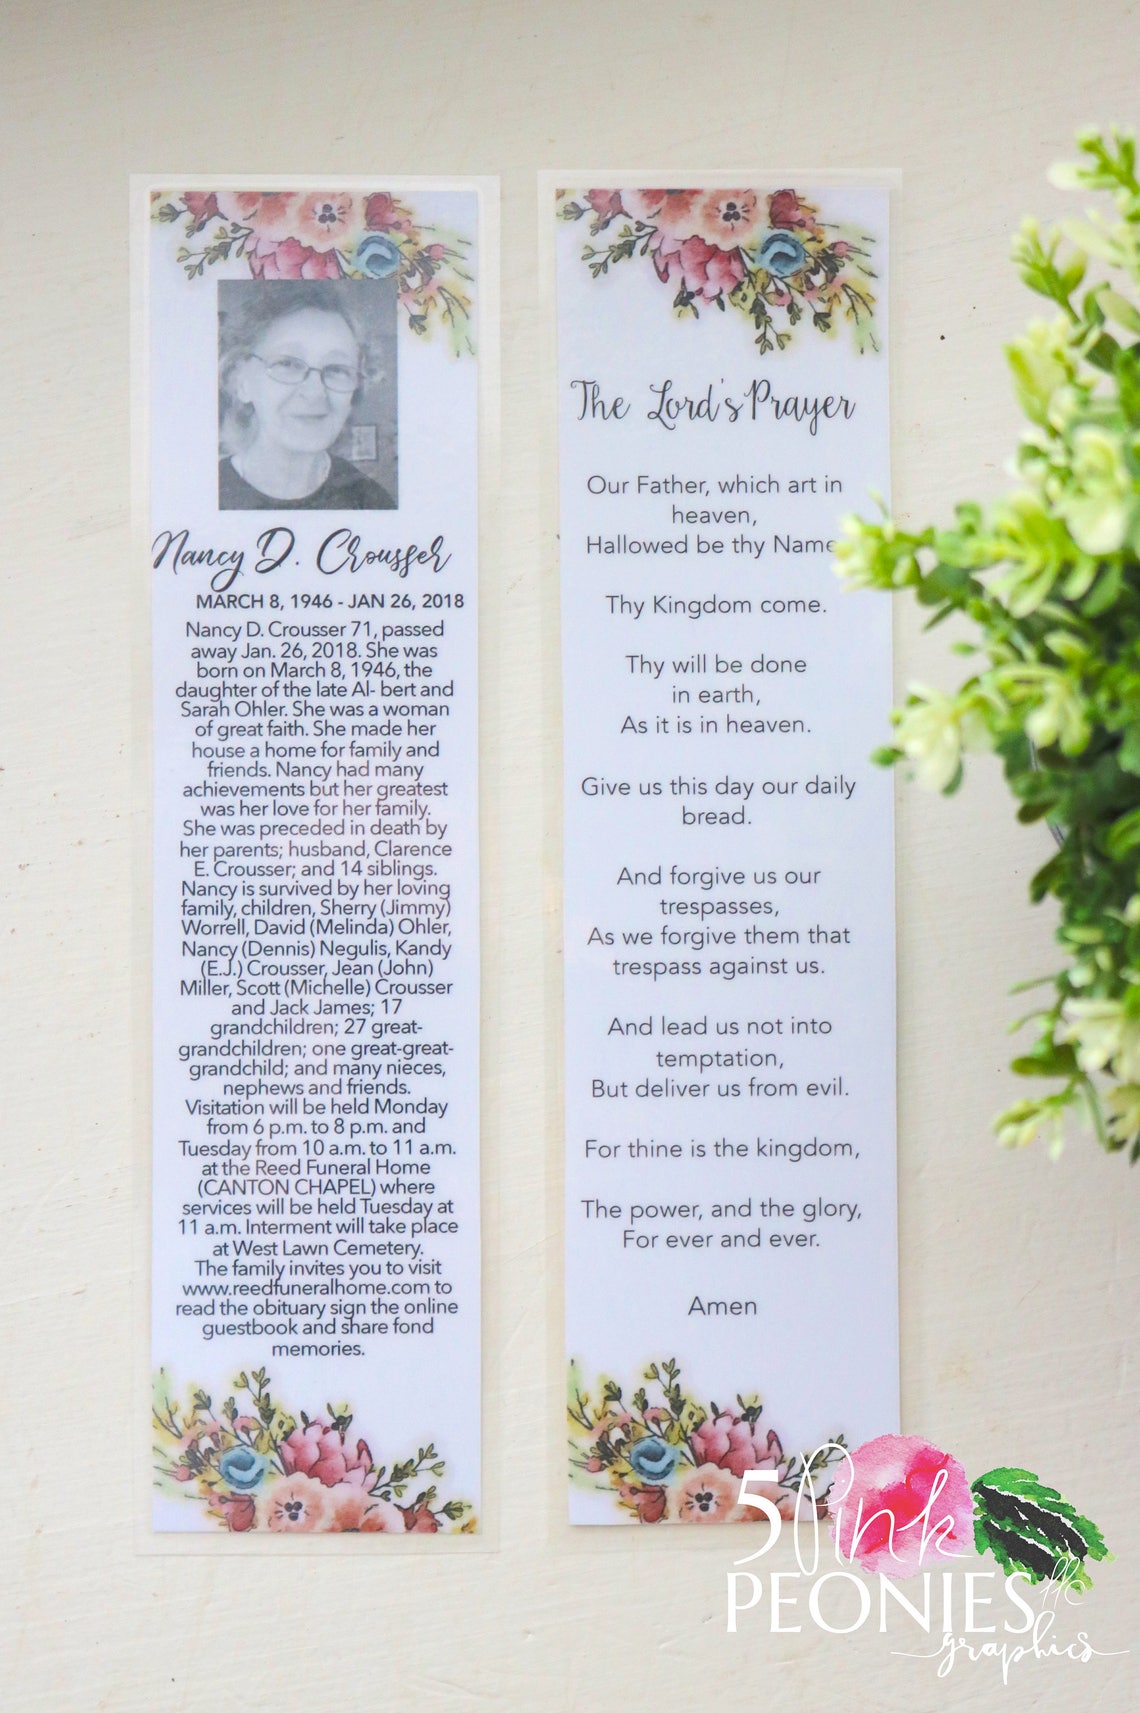 Nancy D. Crousser
MARCH 8, 1946 - JAN 26, 2018
Nancy D. Crousser 71, passed
away Jan. 26, 2018. She was
born on March 8, 1946, the
daughter of the late Al- bert and
Sarah Ohler. She was a woman
of great faith. She made her
house a home for family and
friends. Nancy had many
achievements but her greatest
was her love for her family.
She was preceded in death by
her parents; husband, Clarence
E. Crousser; and 14 siblings.
Nancy is survived by her loving
family, children, Sherry (Jimmy)
Worrell, David (Melinda) Ohler,
Nancy (Dennis) Negulis, Kandy
(E.J.) Crousser, Jean (John)
Miller, Scott (Michelle) Crousser
and Jack James; 17
grandchildren; 27 great-
grandchildren; one great-great-
grandchild; and many nieces,
nephews and friends.
Visitation will be held Monday
from 6 p.m. to 8 p.m. and
Tuesday from 10 a.m. to 11 a.m.
at the Reed Funeral Home
(CANTON CHAPEL) where
services will be held Tuesday at
11 a.m. Interment will take place
at West Lawn Cemetery.
The family invites you to visit
www.reedfuneralhome.com to
read the obituary sign the online
guestbook and share fond
memories.
The Lord's Prayer
Our Father, which art in
heaven,
Hallowed be thy Name
Thy Kingdom come.
Thy will be done
in earth,
As it is in heaven.
Give us this day our daily
bread.
And forgive us our
trespasses,
As we forgive them that
trespass against us.
And lead us not into
temptation,
But deliver us from evil.
For thine is the kingdom,
The power, and the glory,
For ever and ever.
Amen
5 Pink
PEONIES llc
graphics